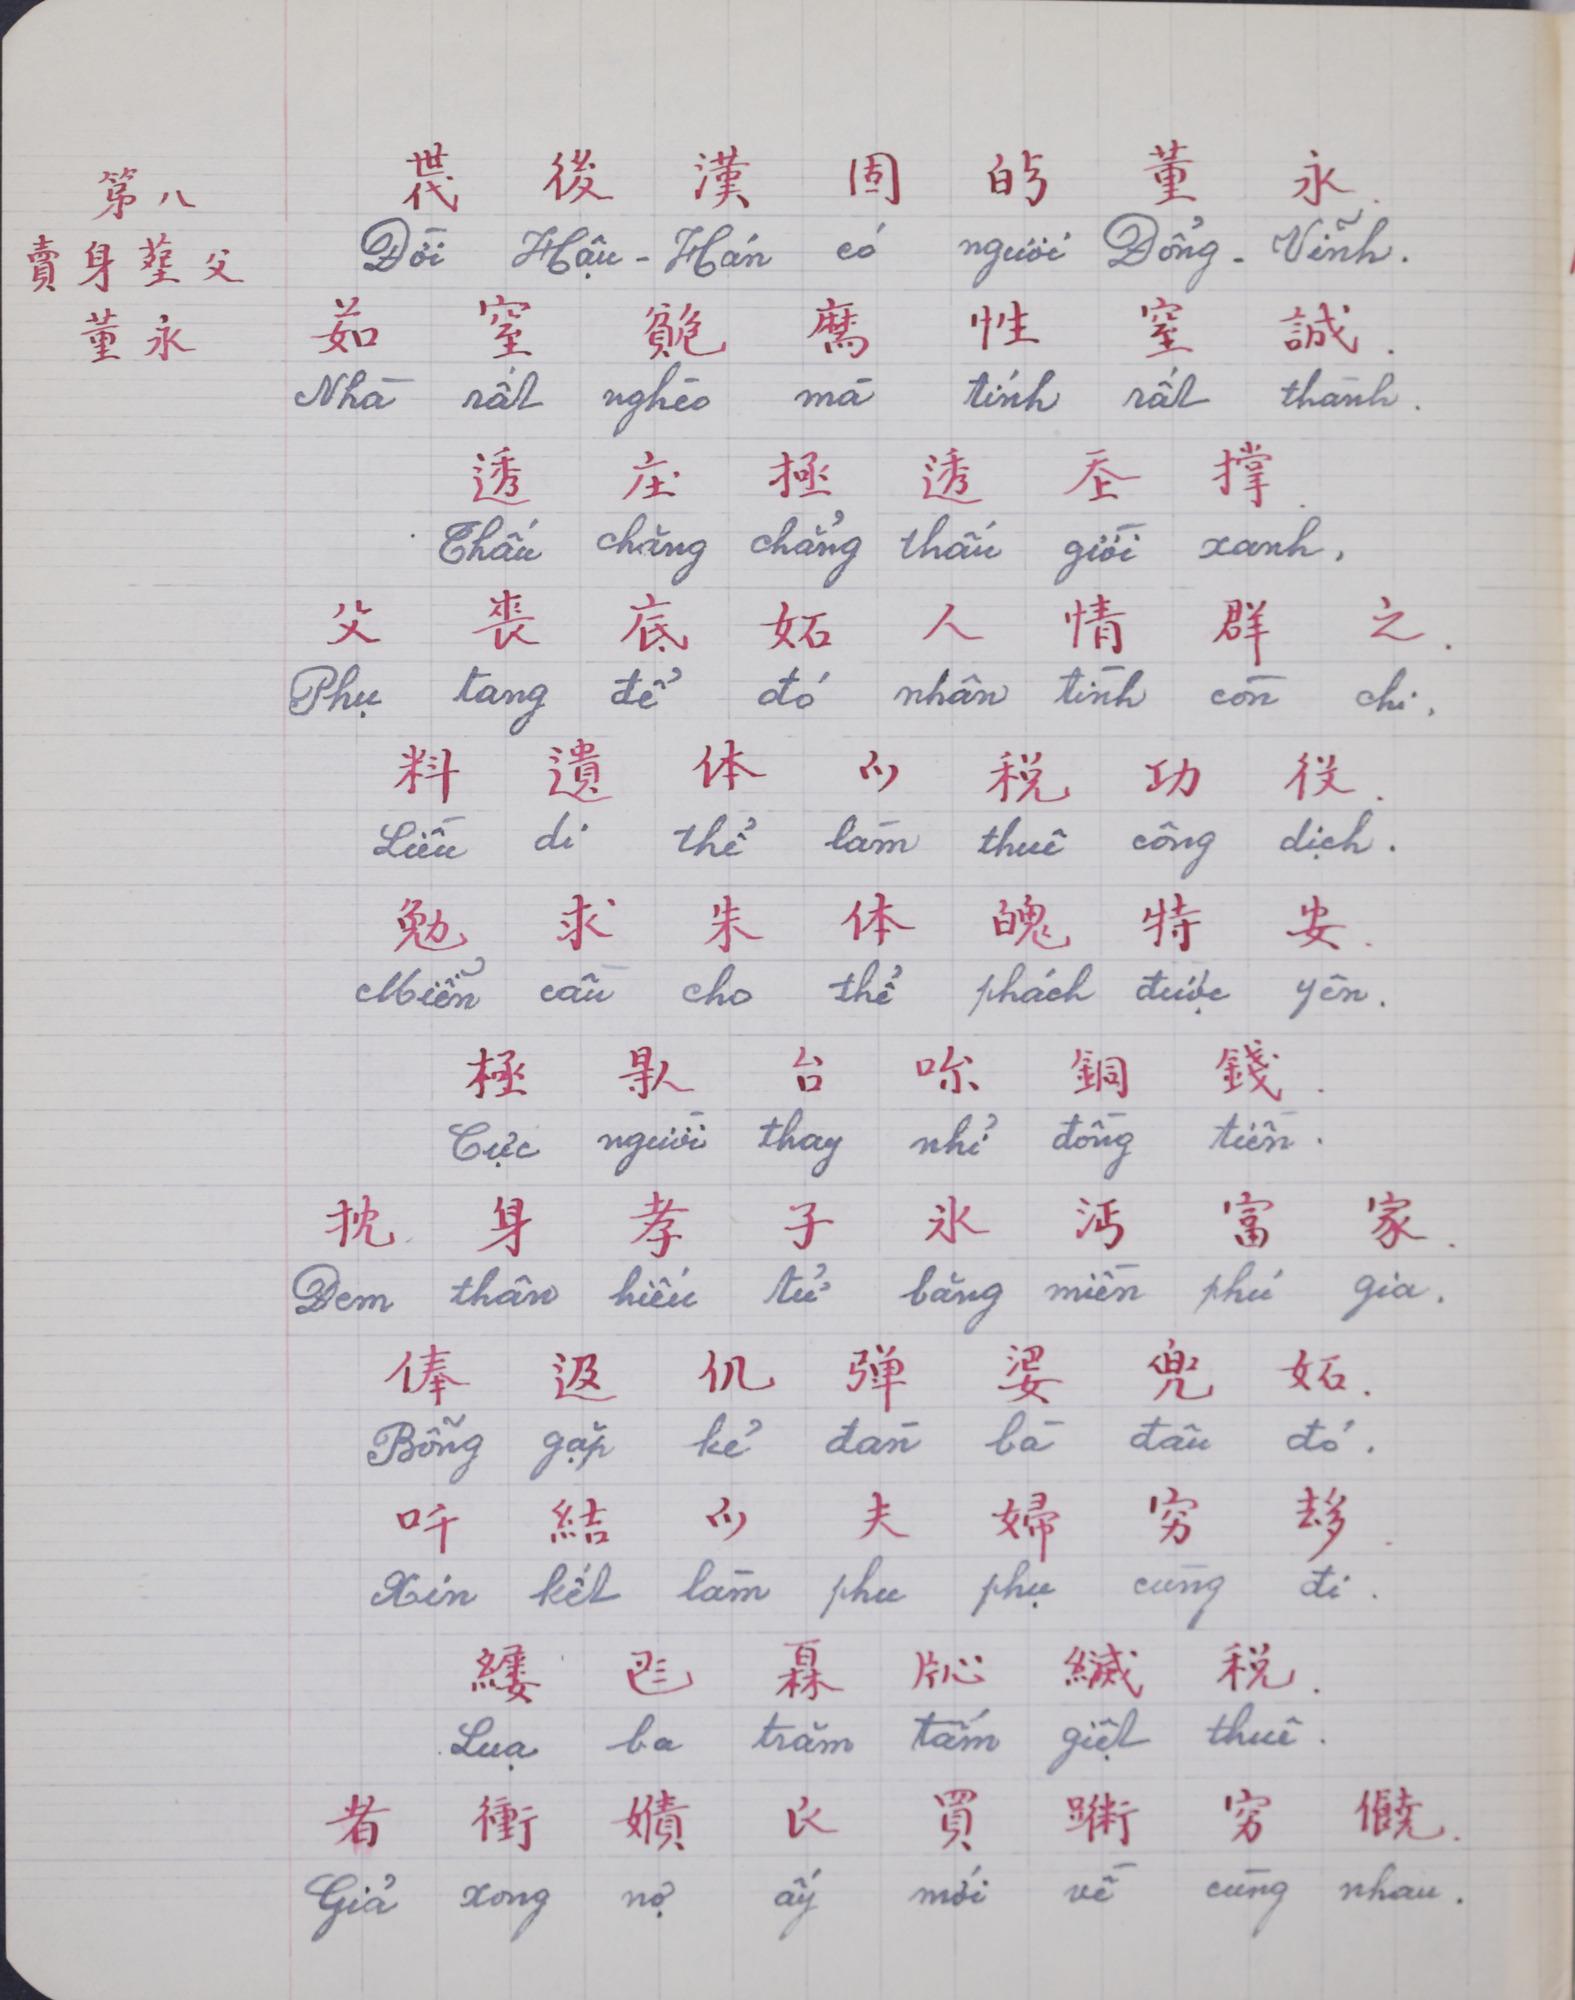 第八
賣身塟父
董永
𠁀後漢固𠊚董永.
Đời Hậu-Hán có người Đổng-Vĩnh.
茹窒𧹅麿性窒誠.
Nhà rất nghèo mà tính rất thành.
透庄拯透𡗶撑
Thấu chăng chẳng thấu giời xanh,
父喪底妬人情群之.
Phụ tang để đó nhân tình còn chi.
料遺体𫜵税功役.
Liều di thể làm thuê công dịch.
勉求朱体魄特安.
Miễn cầu cho thể phách được yên.
極𠊛台𠰚銅錢.
Cực người thay nhỉ đồng tiền.
抌身孝子氷沔富家.
Đem thân hiếu tử băng miền phú gia.
俸趿仉弹婆兜妬.
Bỗng gặp kẻ đàn bà đâu đó.
吀結𫜵夫婦穷𠫾.
Xin kết làm phu phụ cùng đi.
縷𠀧𤾓𬌓緎税.
Lụa ba trăm tấm giệt thuê.
者衝𡢻𧘇買𧗱穷饒.
Giả xong nợ ấy mới về cùng nhau.